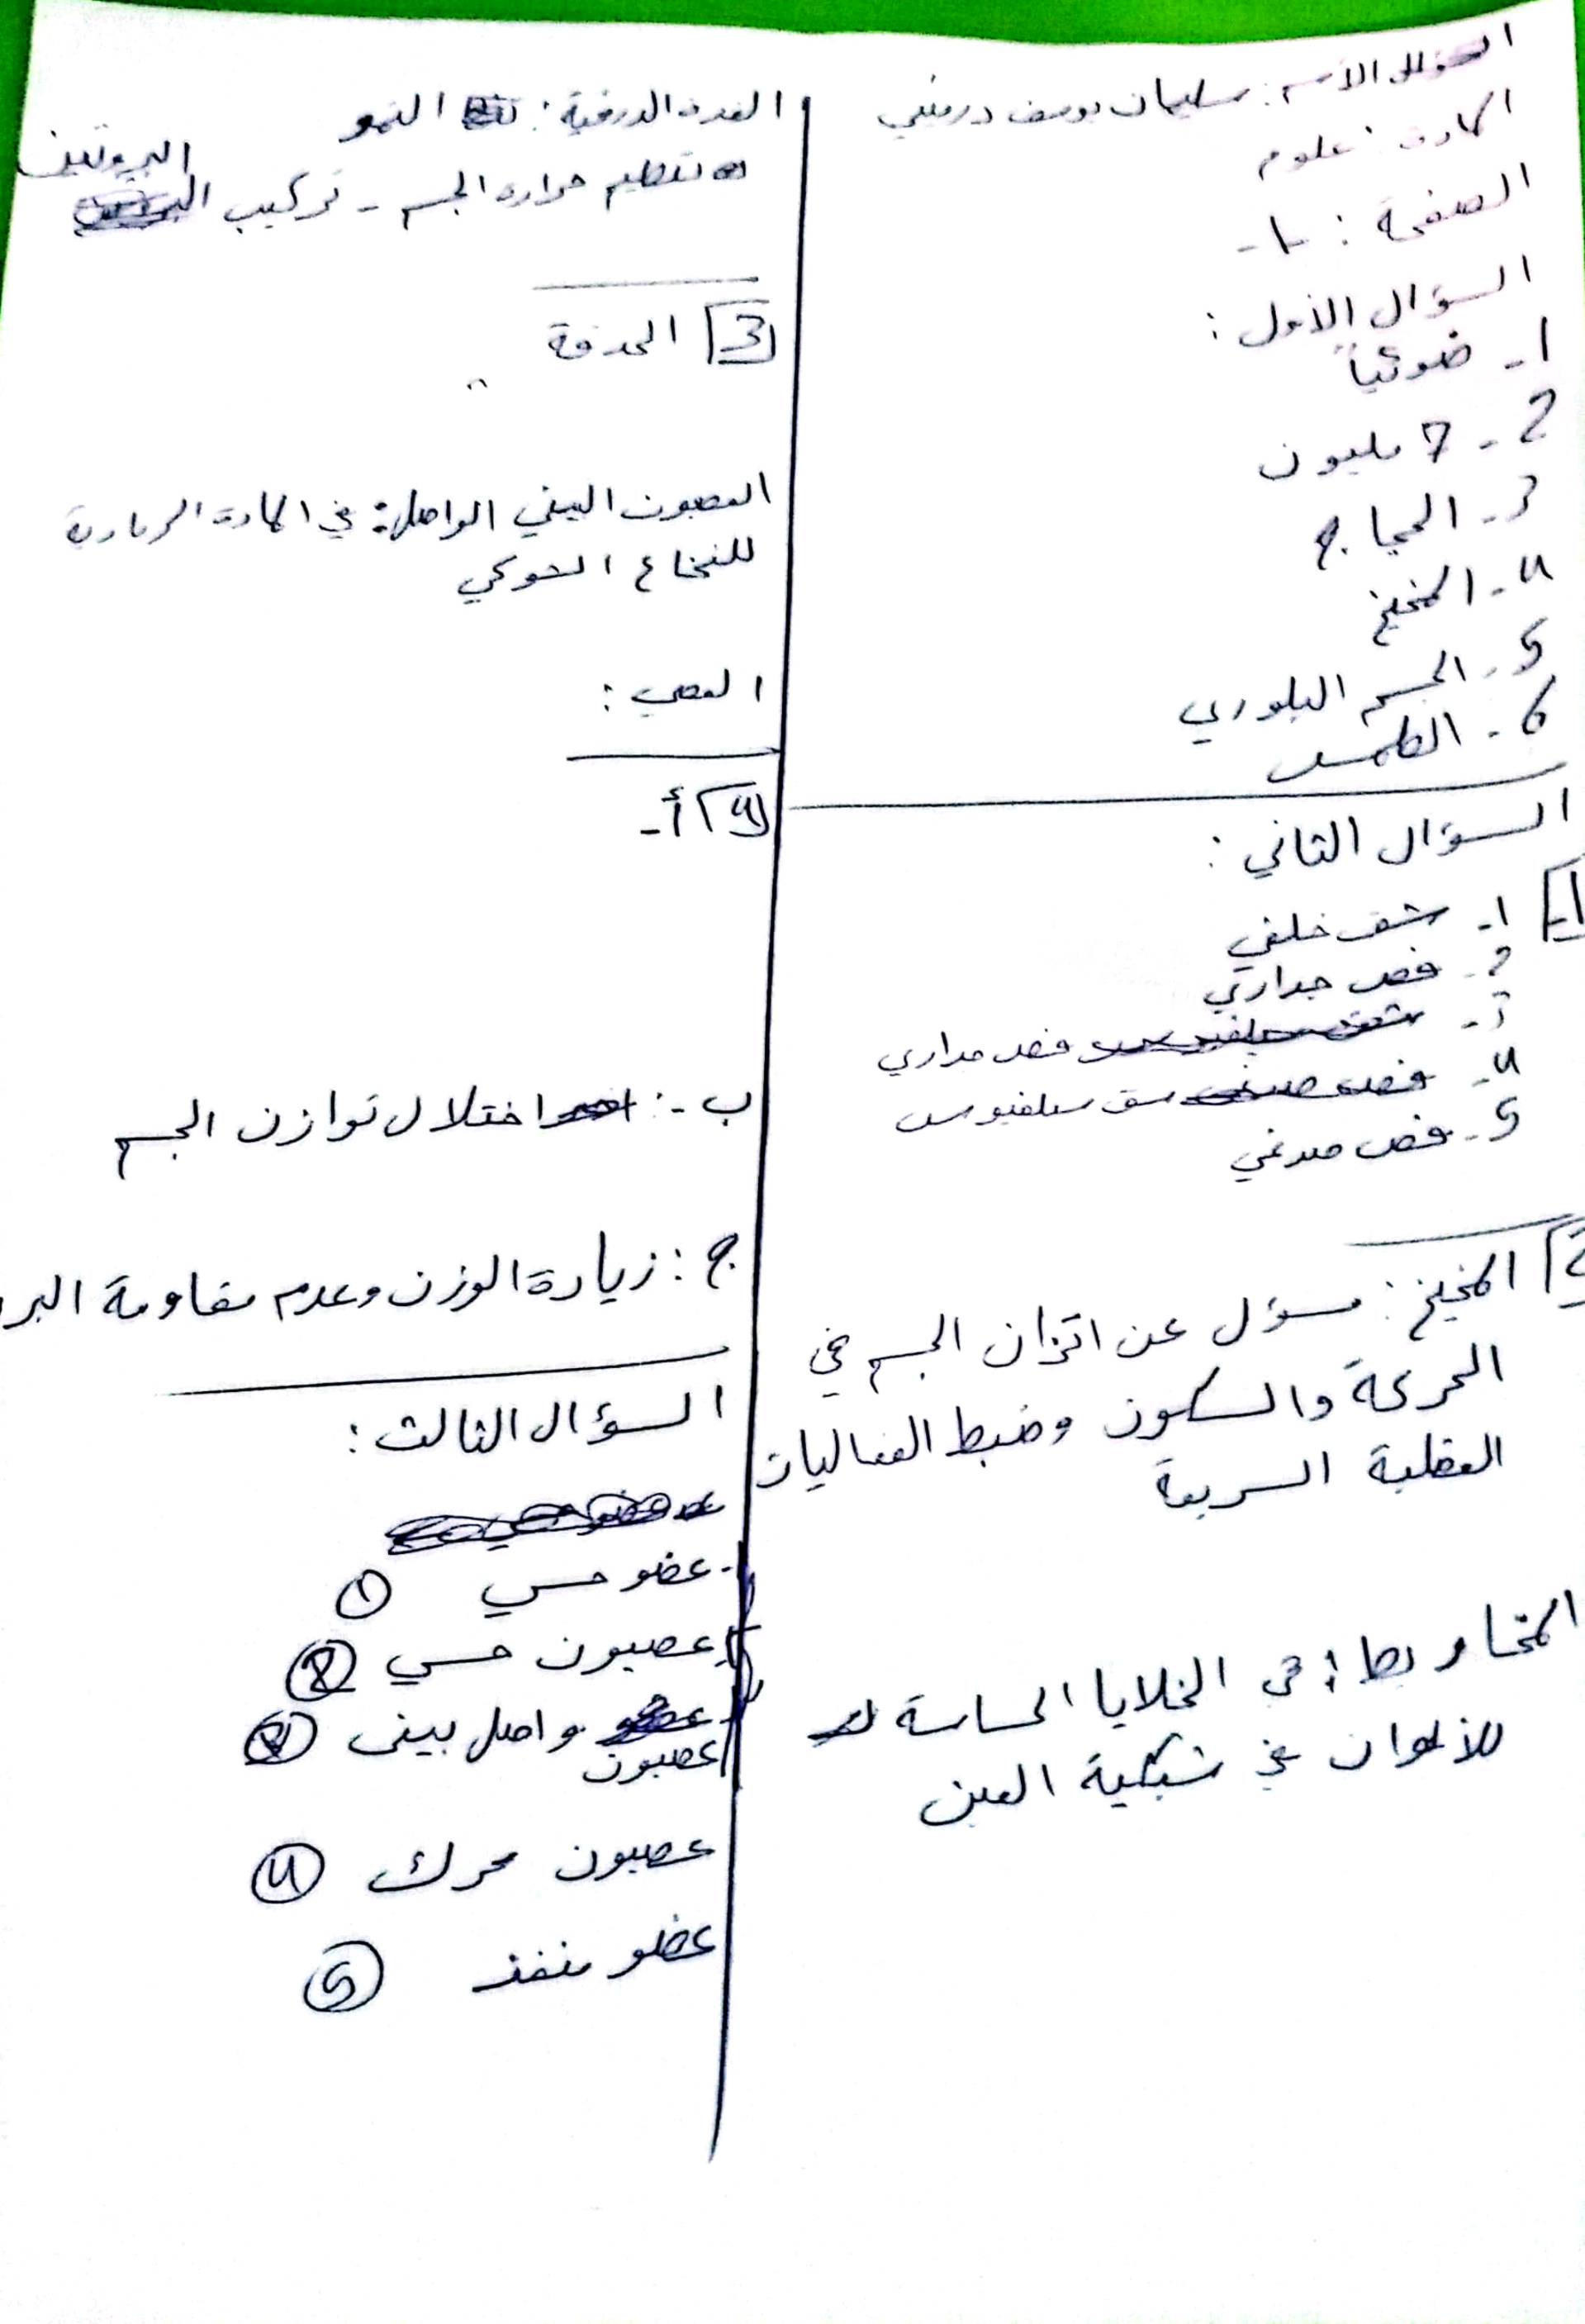 الاسم: سليمان يوسف درويش
المادة: علوم
الصفحة: -1-
السؤال الأول:
1- ضوئياً
2- 7 مليون
3- الحجاج
4- المخيخ
5- الجسم البلوري
6- الطمس
السؤال الثاني:
1-
1- شق خلفي
2- فص جداري
3- فص جداري
4- شق سيلفيوس
5- فص صدغي
2 المخيخ: مسؤل عن اتزان الجسم في
الحركة والسكون وضبط الفعاليات
العضلية السريعة
المخاريط: هي الخلايا الحساسة
للألوان في شبكية العين
الغدة الدرقية: النمو
تنظيم حرارة الجسم - تركيب البروتين
3 الحدقة
العصبون البيني الواصل: في المادة الرمادية
للنخاع الشوكي
العصب:
4 أ-
ب-: اختلال توازن الجسم
ج: زيادة الوزن وعدم مقاومة البر
السؤال الثالث:
- عضو حسي 1
عصبون حسي 2
واصل بيني 3
عصبون
عصبون محرك 4
عضو منفذ 5